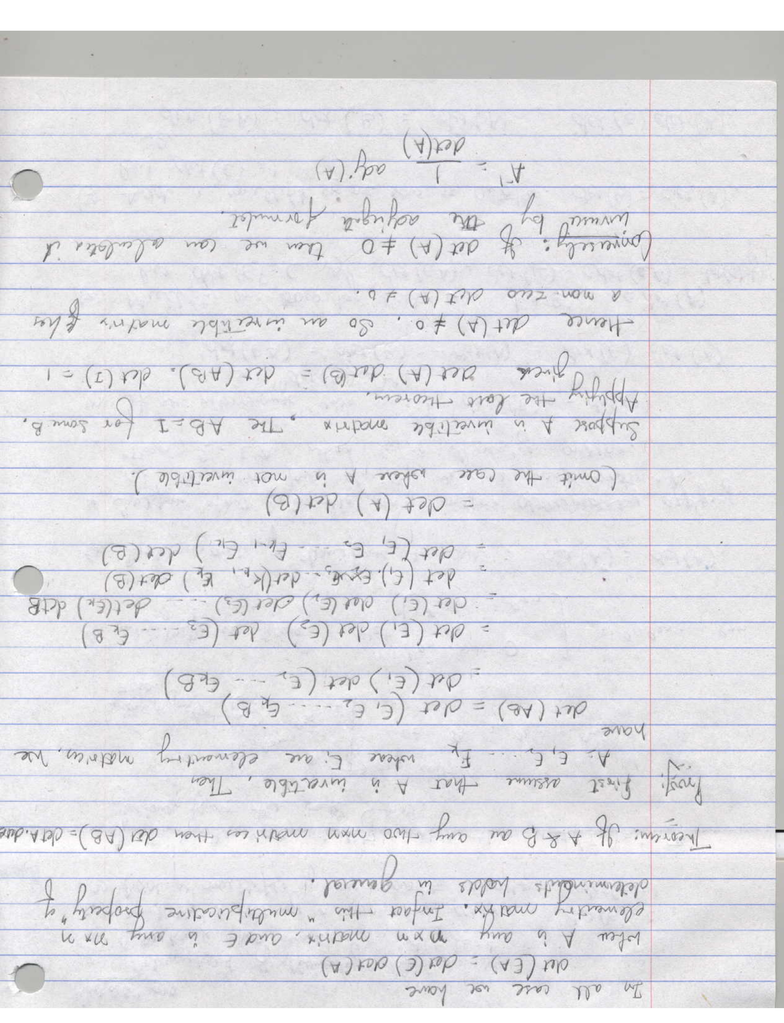 In all case we have
det(EA) = det(E) det(A)
when A is any n×n matrix, and E is any n×n
elementry matrix. Infact this "multiplicative property" of
determinants holds in general.
Theorem: If A & B are any two n×n matrices then det(AB) = detA.
Proof: First assume that A is invertible, Then
A = E₁ E₂ ..... Eₖ where Eᵢ are elementry matrices, we
have
det(AB) = det(E₁ E₂ ...... Eₖ B)
= det(E₁) det(E₂ ...... EₖB)
= det(E₁) det(E₂) det(E₃ ...... Eₖ B)
= det(E₁) det(E₂) det(E₃) ..... det(Eₖ) detB
= det(E₁). det(B)
= det(E₁ E₂ ... Eₖ₋₁ Eₖ) det(B)
= det(A) det(B)
(omit the case where A is not invertible).
Suppose A is invertible matrix, The AB = I for some B.
Applying the last theorem.
gives det(A) det(B) = det(AB). det(I) = 1
Hence det(A) ≠ 0. So an invertible matrix has
a non-zero det(A) ≠ 0.
Conversely: If det(A) ≠ 0 then we can calculate it
inverse by the adjugate
A⁻¹ = 1/det(A) adj(A)